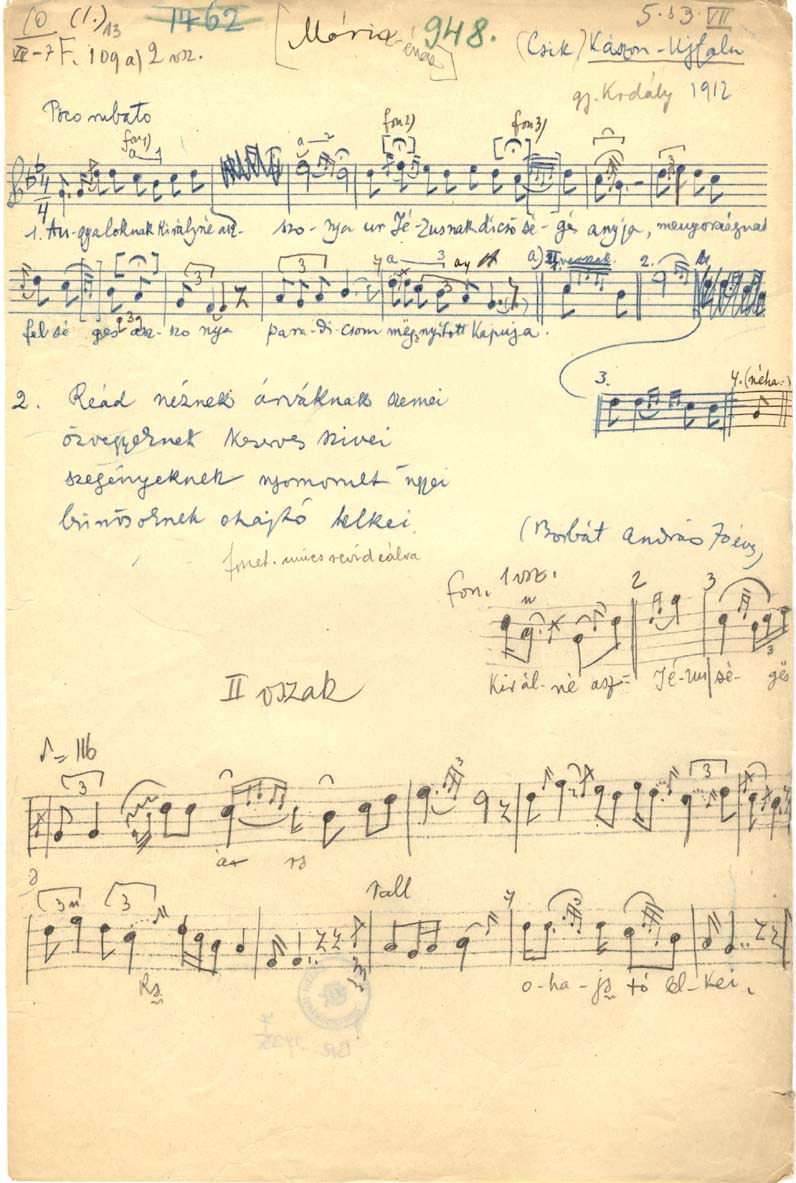 10 (1.) 13 1762 [Mária-ének] 948. 5. b3. VII
VII-7 F. 109 a) 2 vsz. (Csik) Kászon-Ujfalu
gj. Kodály 1912
Poco rubato
fon 1) fon 2) fon 3)
1. An-gyaloknak királyné asz- szo-nya ur Jé-zusnak dicső sé-gés anyja, menyországnak
a) 2.
fel sé ges asz-szo nya para-di-csom megnyitott kapuja.
3. 4. (néha:)
2. Reád néznek árváknak szemei
özvegyeknek keserves szivei
szegényeknek nyomorult ügyei
bünösöknek ohajtó lelkei.
fonet. nincs revideálva
(Borbát András 70 éves)
fon. 1 vsz. 2 3
Királ-né asz- Jé-zus sé-gés
II vszak
♪= 116
3
3
3
3 3
rall
o-ha-js tó lel-kei.